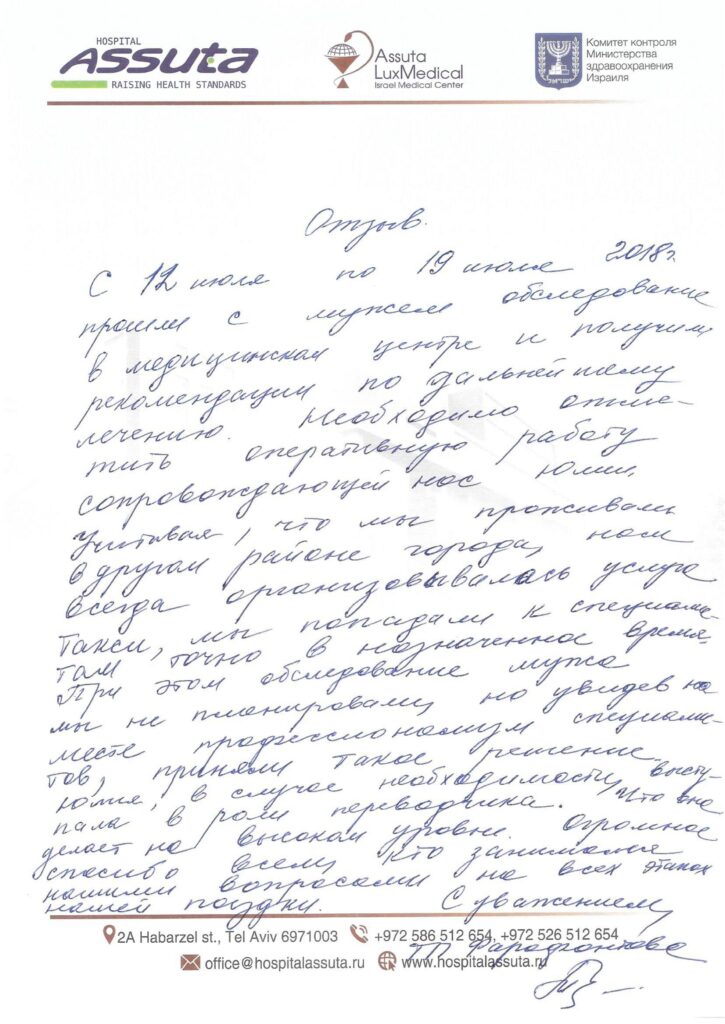 HOSPITAL
Assuta
RAISING HEALTH STANDARDS
Assuta
LuxMedical
Israel Medical Center
Комитет контроля
Министерства
здравоохранения
Израиля
Отзыв.
С 12 июля по 19 июля 2018г.
прошли с мужем обследование
в медицинском центре и получили
рекомендации по дальнейшему
лечению. Необходимо отме-
тить оперативную работу
сопровождающей нас Юлии.
Учитывая, что мы проживали
в другом районе города, нам
всегда организовывалась услуга
такси, мы попадали к специалис-
там точно в назначенное время.
При этом обследование мужа
мы не планировали, но увидев на
месте профессионализм специалис-
тов, приняли такое решение.
Юлия, в случае необходимости, высту-
пала в роли переводчика. Что она
делает на высоком уровне. Огромное
спасибо всем, кто занимался
нашими вопросами на всех этапах
нашей поездки. С уважением,
2A Habarzel st., Tel Aviv 6971003 +972 586 512 654, +972 526 512 654
office@hospitalassuta.ru www.hospitalassuta.ru